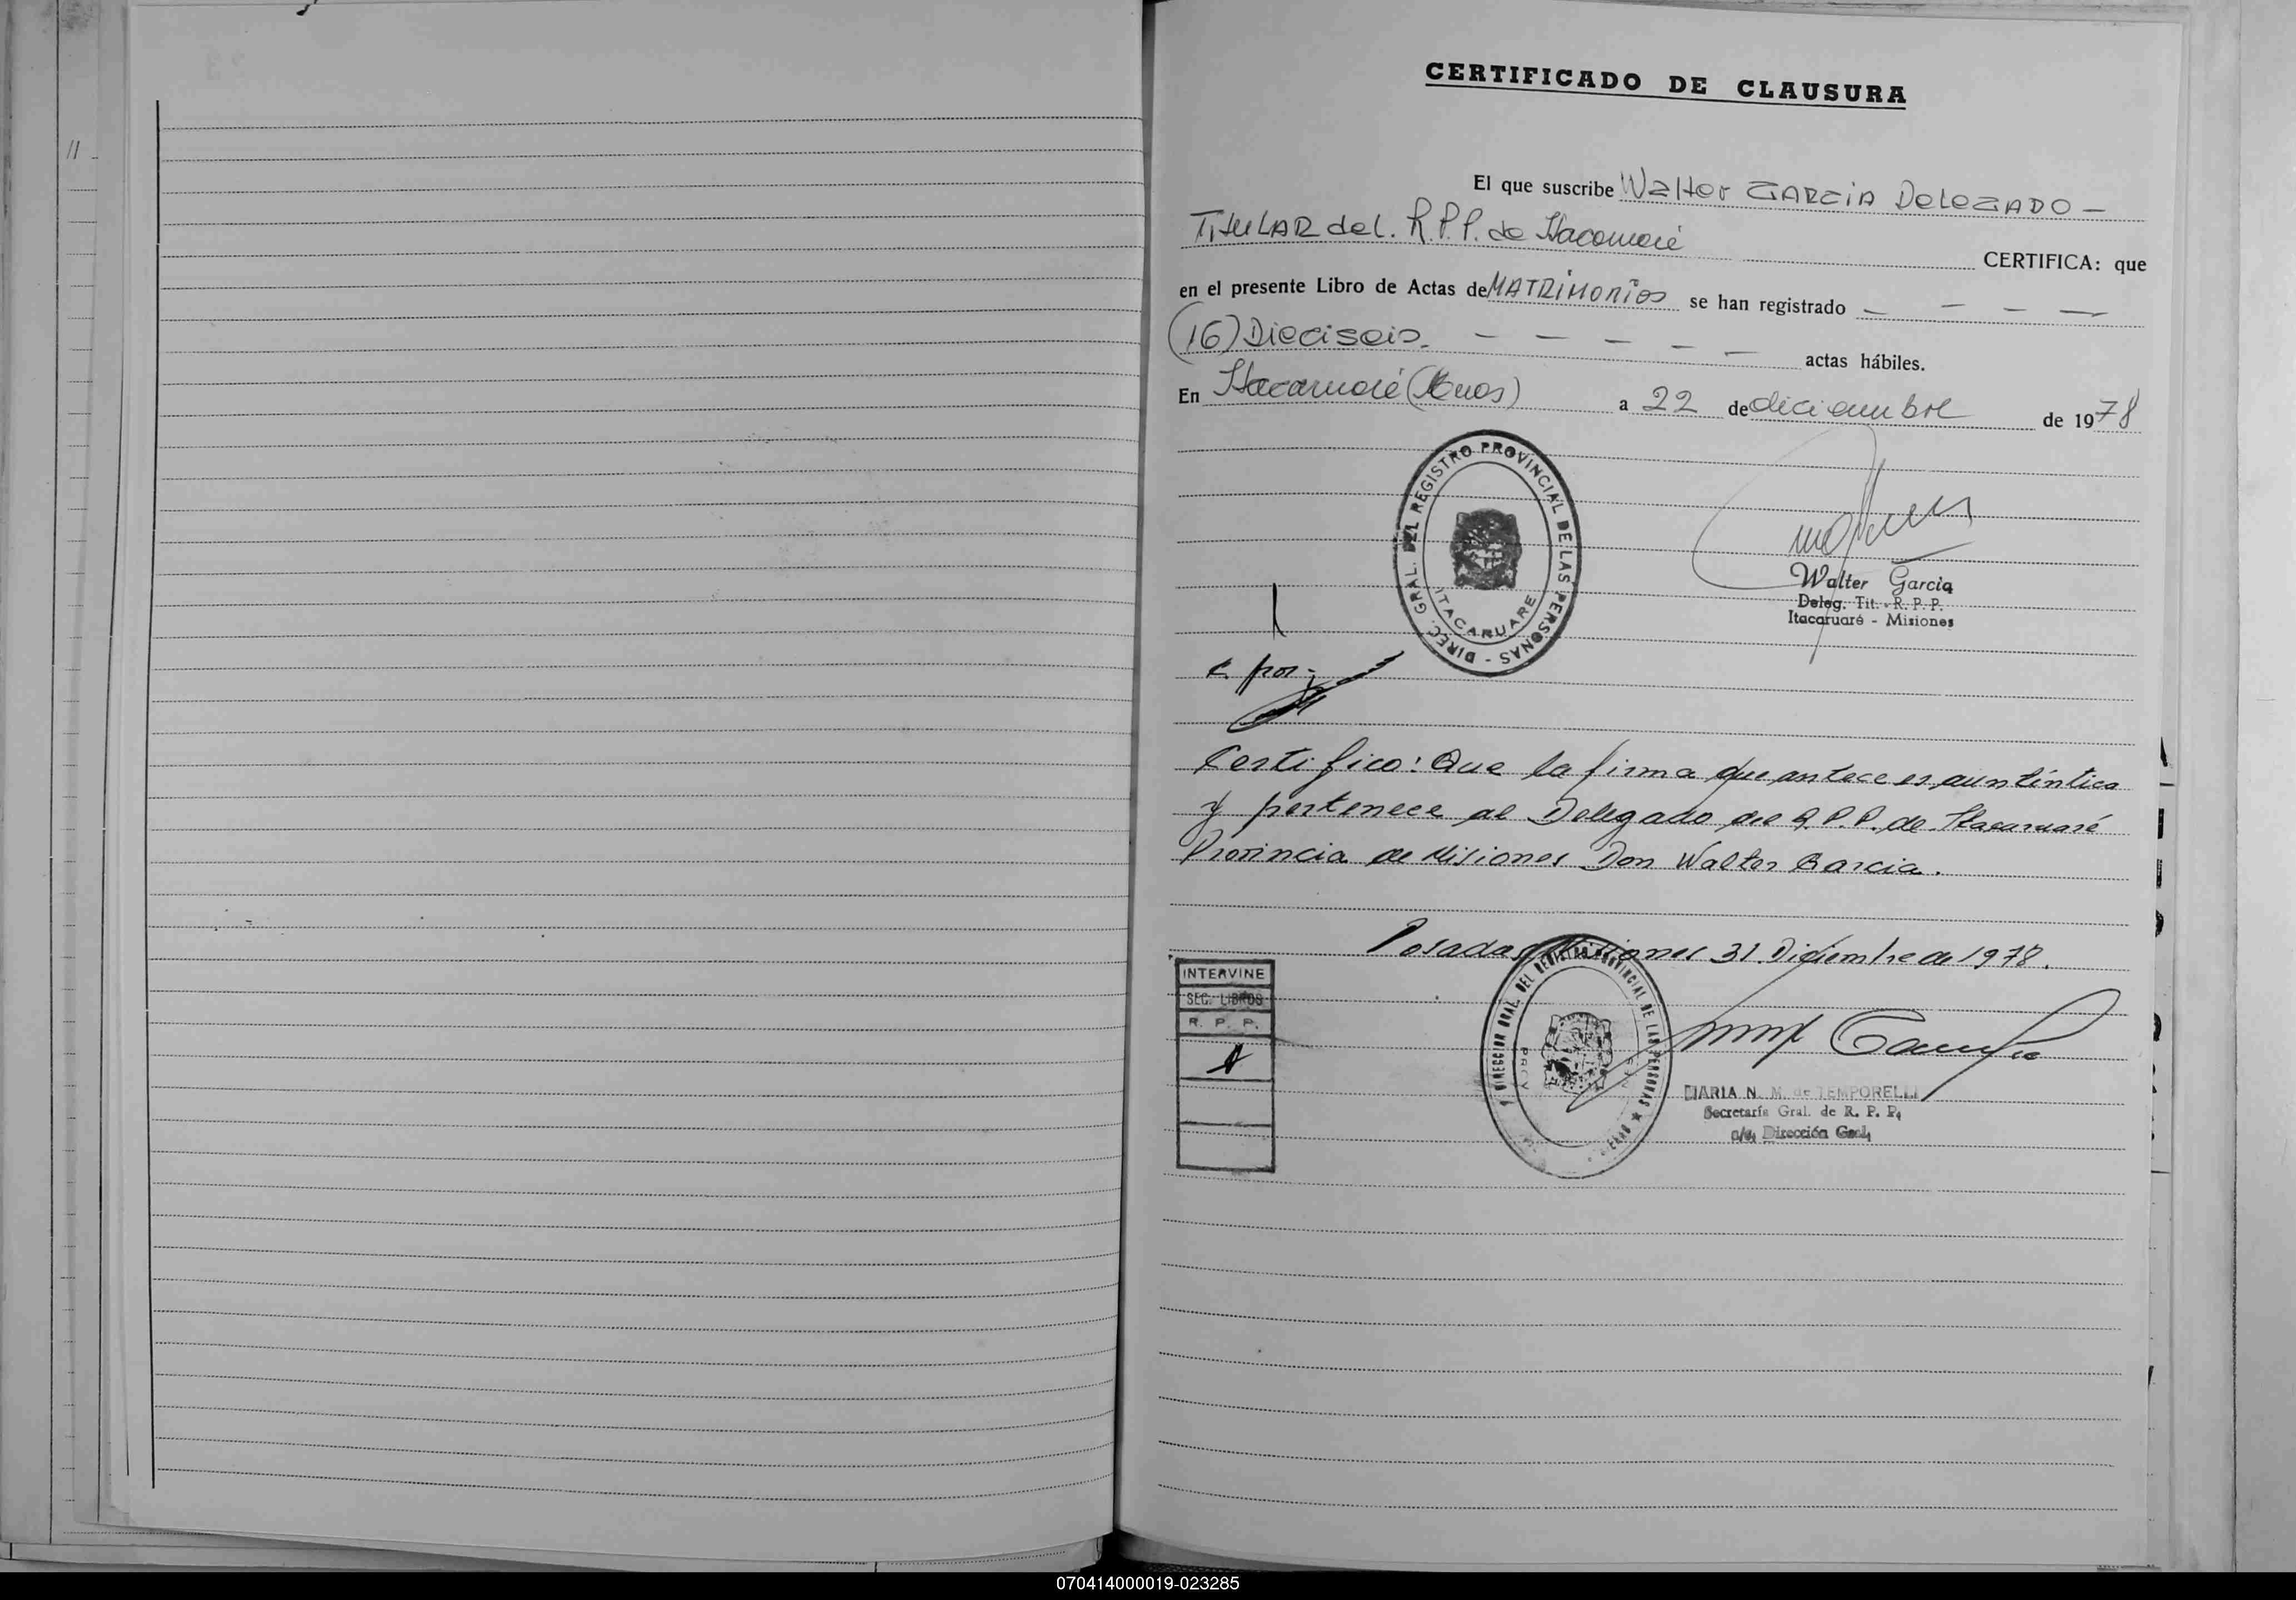 CERTIFICADO DE CLAUSURA
El que suscribe Walter GARCIA DELEGADO -
TITULAR del. R.P.P. de Itacaruaré CERTIFICA: que
en el presente Libro de Actas de MATRIMONIOS se han registrado - - - -
(16) Dieciseis. - - - - - - actas hábiles.
En Itacaruaré (Mnes) a 22 de diciembre de 1978
DIREC. GRAL. DEL REGISTRO PROVINCIAL DE LAS PERSONAS -
ITACARUARE
Walter Garcia
Deleg. Tit. - R. P. P.
Itacaruaré - Misiones
Certifico: Que la firma que antece es auntíntica
y pertenece al Delegado del R.P.P. de Itacaruaré
Provincia de Misiones Don Walter Garcia.
Posadas Misiones 31 Diciembre de 1978.
INTERVINE
SEC. LIBROS
R. P. P.
DIRECCION GRAL. DEL REGISTRO PROVINCIAL DE LAS PERSONAS
MARIA N. M. de TEMPORELLI
Secretaría Gral. de R. P. P.
a/c. Dirección Gral.
070414000019-023285